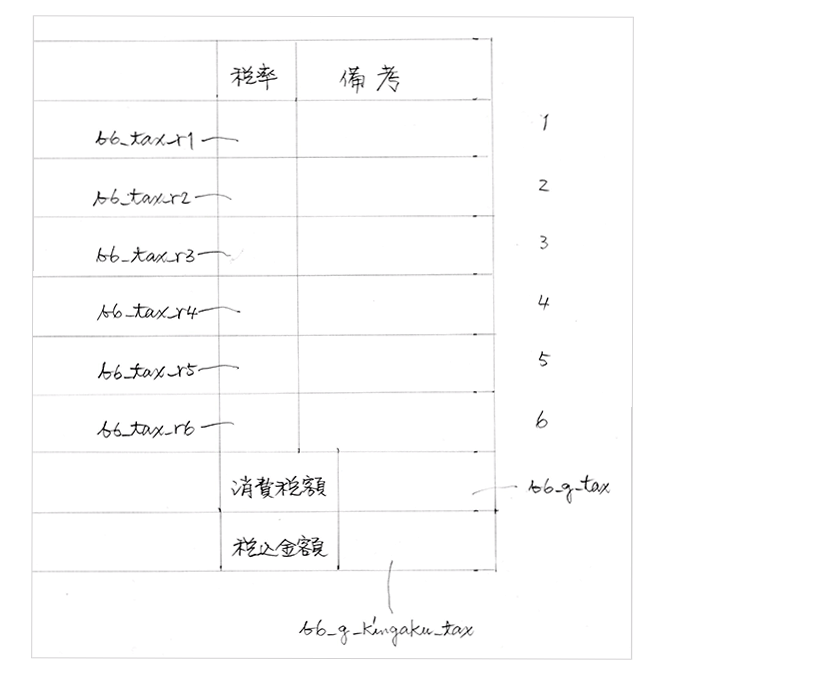 税率 備考
tb_tax_r1 1
tb_tax_r2 2
tb_tax_r3 3
tb_tax_r4 4
tb_tax_r5 5
tb_tax_r6 6
消費税額 tb_g_tax
税込金額
tb_g_kingaku_tax